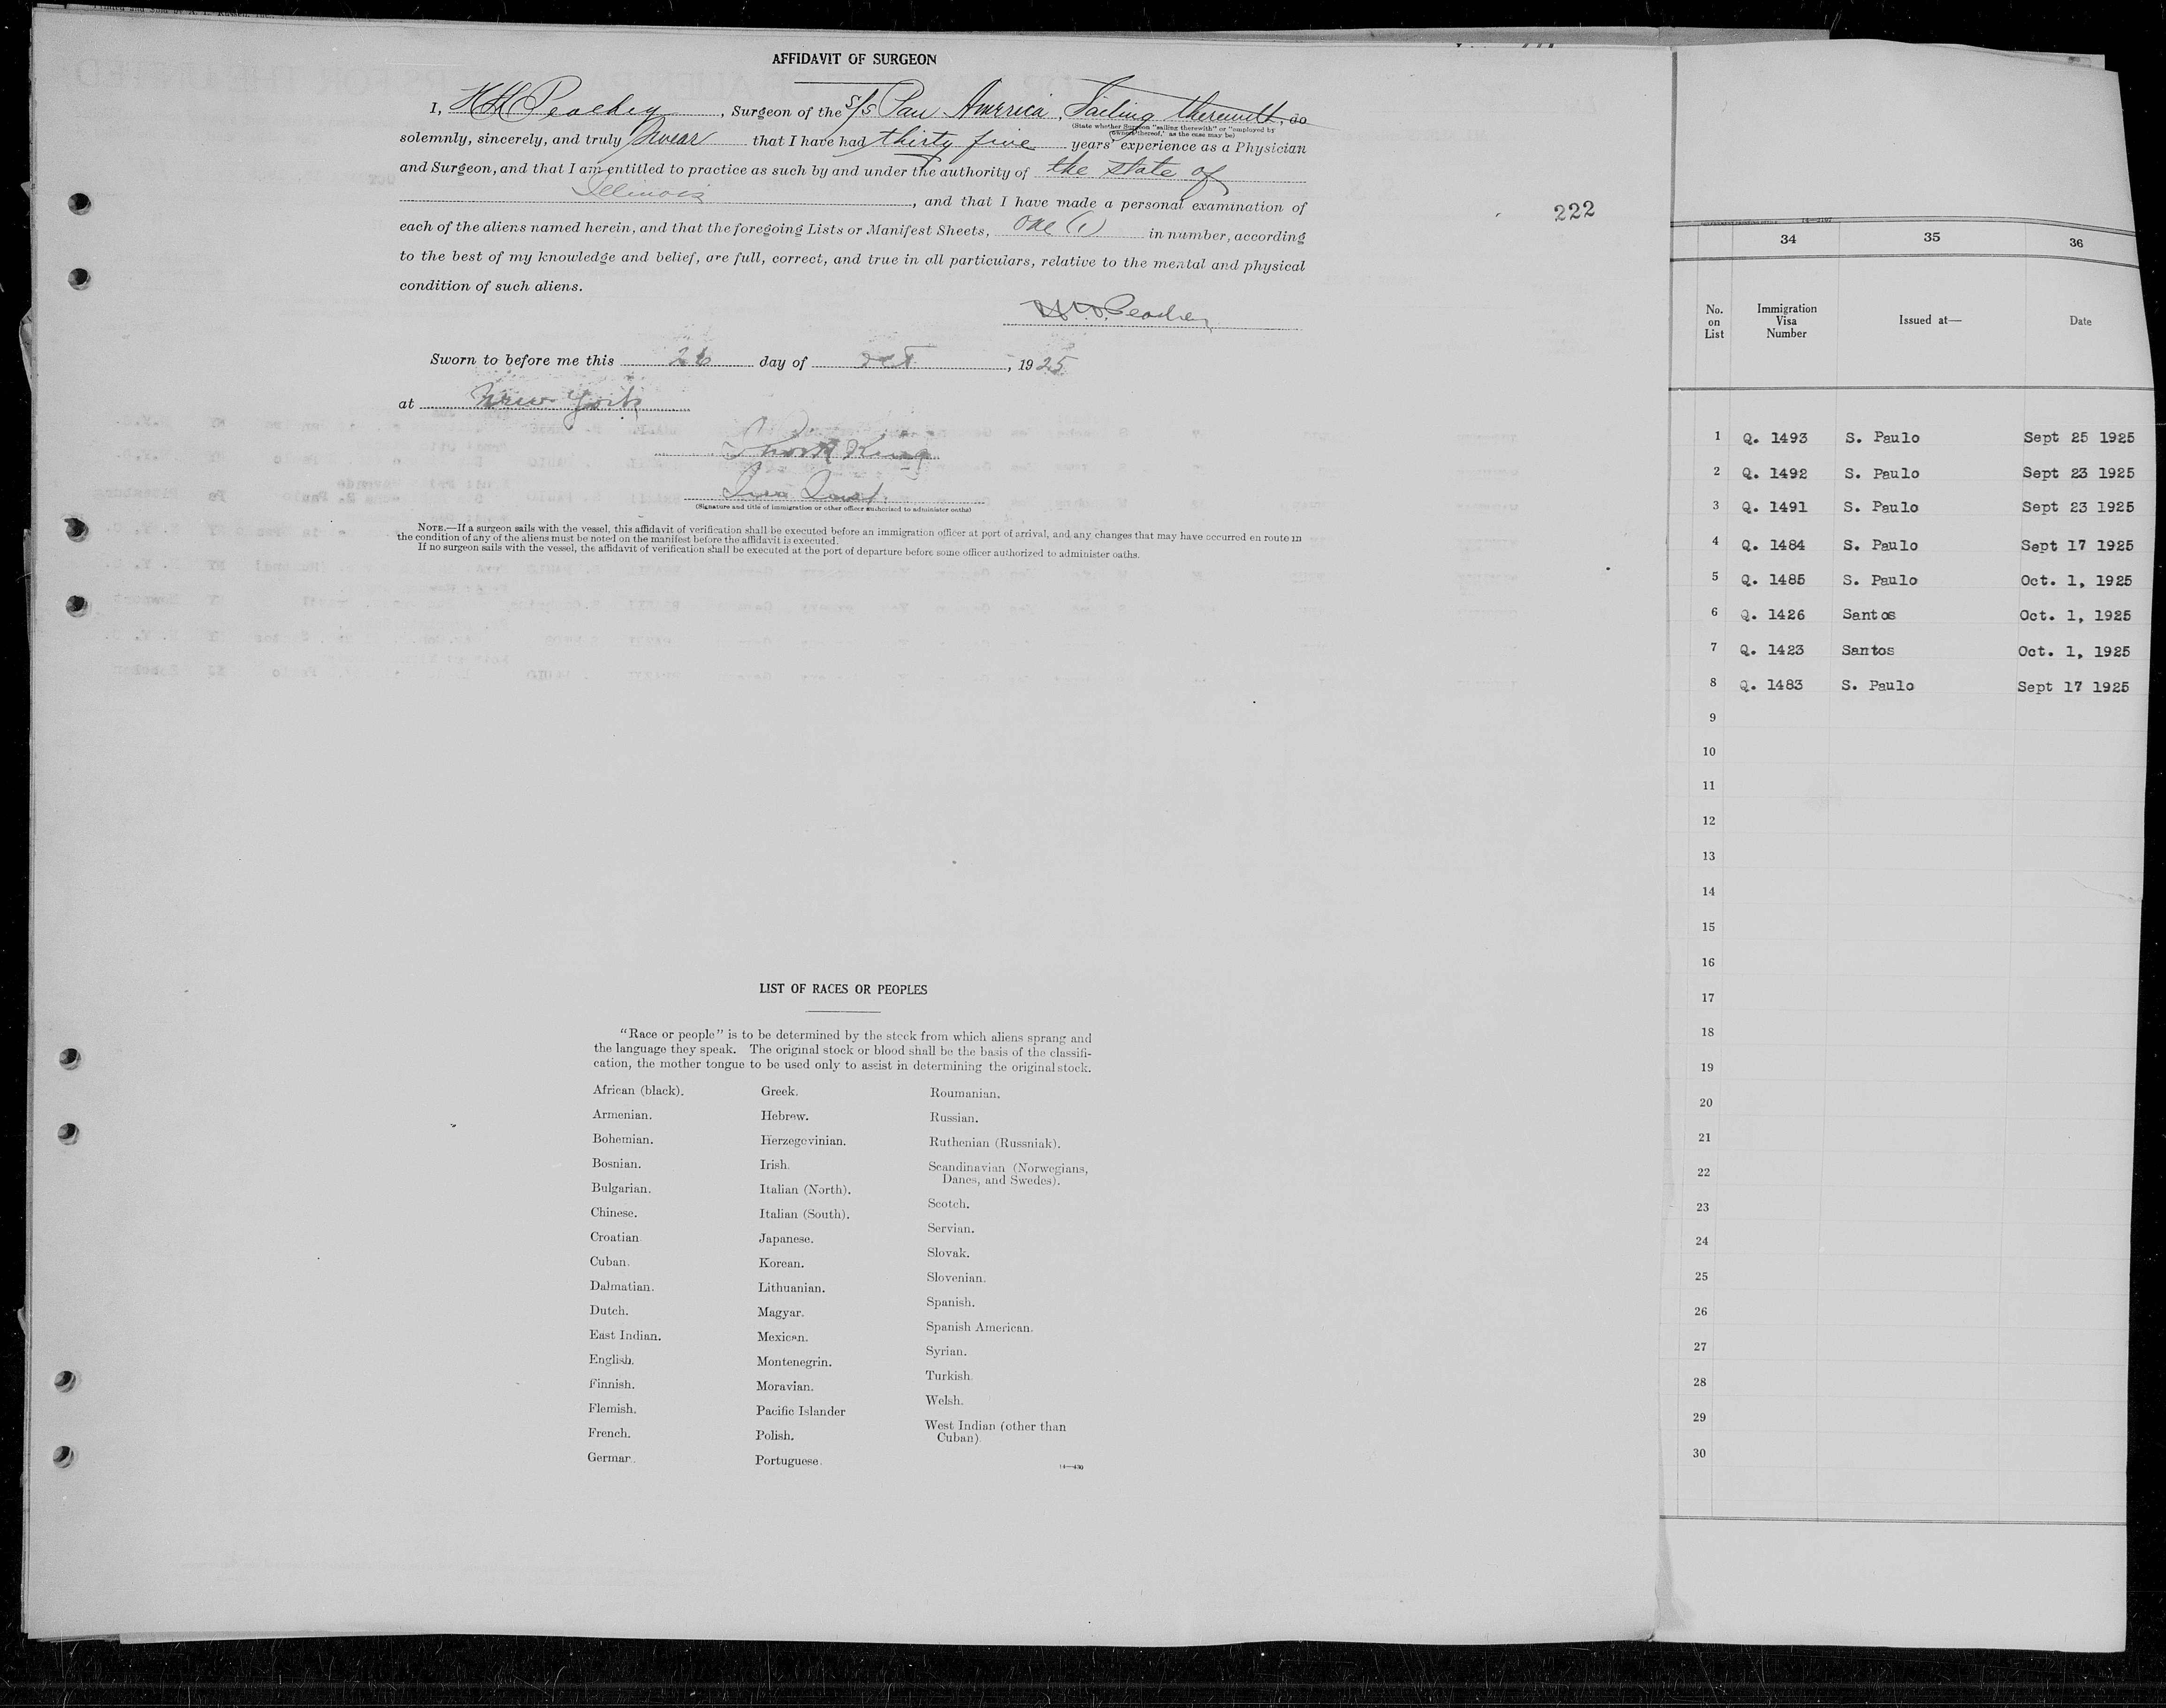 AFFIDAVIT OF SURGEON
I, H H Peachey, Surgeon of the S/S Pan America, Sailing therewith, do
(State whether Surgeon "sailing therewith" or "employed by
owners thereof," as the case may be)
solemnly, sincerely, and truly swear that I have had thirty five years' experience as a Physician
and Surgeon, and that I am entitled to practice as such by and under the authority of the State of
Illinois, and that I have made a personal examination of
each of the aliens named herein, and that the foregoing Lists or Manifest Sheets, One (1) in number, according
to the best of my knowledge and belief, are full, correct, and true in all particulars, relative to the mental and physical
condition of such aliens.
H. H. Peachey
Sworn to before me this 26 day of Oct, 1925
at New York
King
(Signature and title of immigration or other officer authorized to administer oaths)
NOTE.—If a surgeon sails with the vessel, this affidavit of verification shall be executed before an immigration officer at port of arrival, and any changes that may have occurred en route in
the condition of any of the aliens must be noted on the manifest before the affidavit is executed.
If no surgeon sails with the vessel, the affidavit of verification shall be executed at the port of departure before some officer authorized to administer oaths.
222
LIST OF RACES OR PEOPLES
"Race or people" is to be determined by the stock from which aliens sprang and
the language they speak. The original stock or blood shall be the basis of the classifi-
cation, the mother tongue to be used only to assist in determining the original stock.
African (black).
Armenian.
Bohemian.
Bosnian.
Bulgarian.
Chinese.
Croatian.
Cuban.
Dalmatian.
Dutch.
East Indian.
English.
Finnish.
Flemish.
French.
German.
Greek.
Hebrew.
Herzegovinian.
Irish.
Italian (North).
Italian (South).
Japanese.
Korean.
Lithuanian.
Magyar.
Mexican.
Montenegrin.
Moravian.
Pacific Islander
Polish.
Portuguese.
Roumanian.
Russian.
Ruthenian (Russniak).
Scandinavian (Norwegians,
Danes, and Swedes).
Scotch.
Servian.
Slovak.
Slovenian.
Spanish.
Spanish American.
Syrian.
Turkish.
Welsh.
West Indian (other than
Cuban)
14—430
34 35 36
No. on List Immigration Visa Number Issued at— Date
1 Q. 1493 S. Paulo Sept 25 1925
2 Q. 1492 S. Paulo Sept 23 1925
3 Q. 1491 S. Paulo Sept 23 1925
4 Q. 1484 S. Paulo Sept 17 1925
5 Q. 1485 S. Paulo Oct. 1, 1925
6 Q. 1426 Santos Oct. 1, 1925
7 Q. 1423 Santos Oct. 1, 1925
8 Q. 1483 S. Paulo Sept 17 1925
9
10
11
12
13
14
15
16
17
18
19
20
21
22
23
24
25
26
27
28
29
30